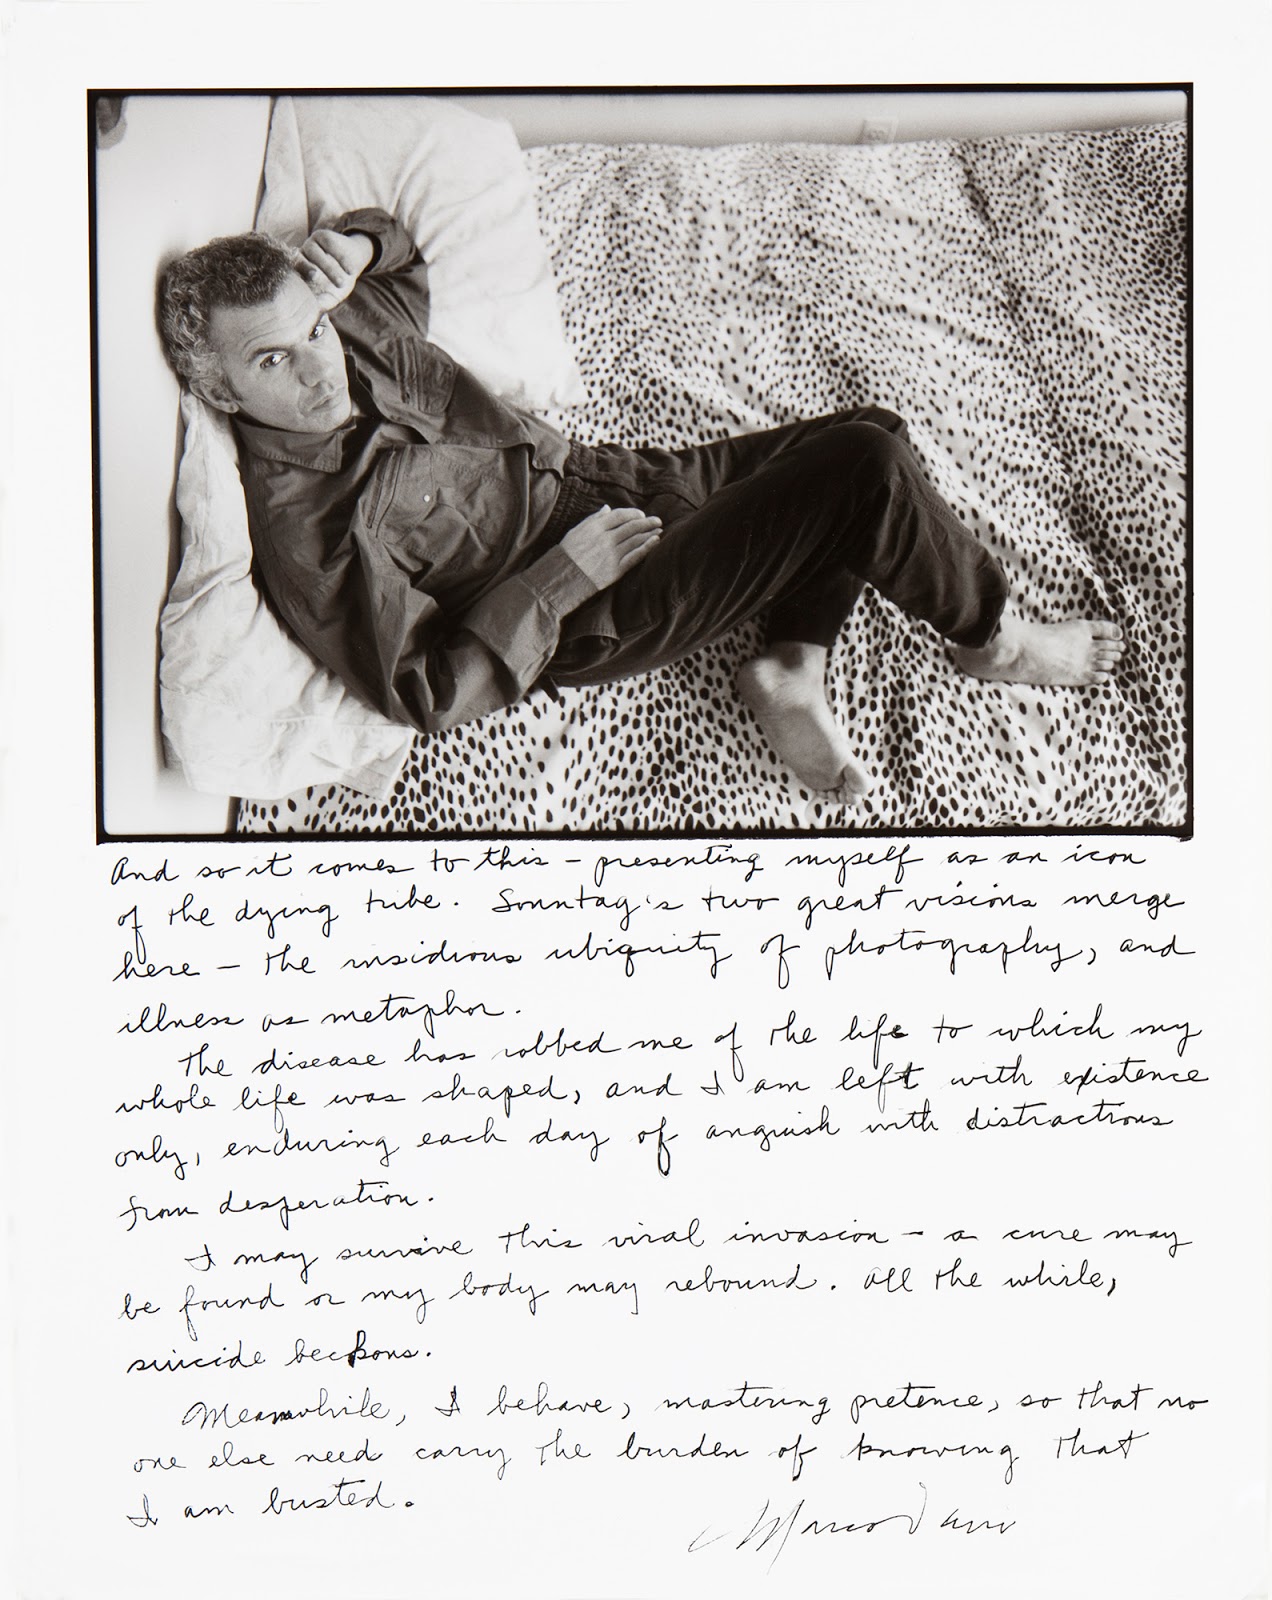 And so it comes to this – presenting myself as an icon
of the dying tribe. Sonntag's two great visions merge
here – the insidious ubiquity of photography, and
illness as metaphor.
The disease has robbed me of the life to which my
whole life was shaped, and I am left with existence
only, enduring each day of anguish with distractions
from desperation.
I may survive this viral invasion – a cure may
be found or my body may rebound. All the while,
suicide beckons.
Meanwhile, I behave, mastering pretence, so that no
one else need carry the burden of knowing that
I am busted.
Marco